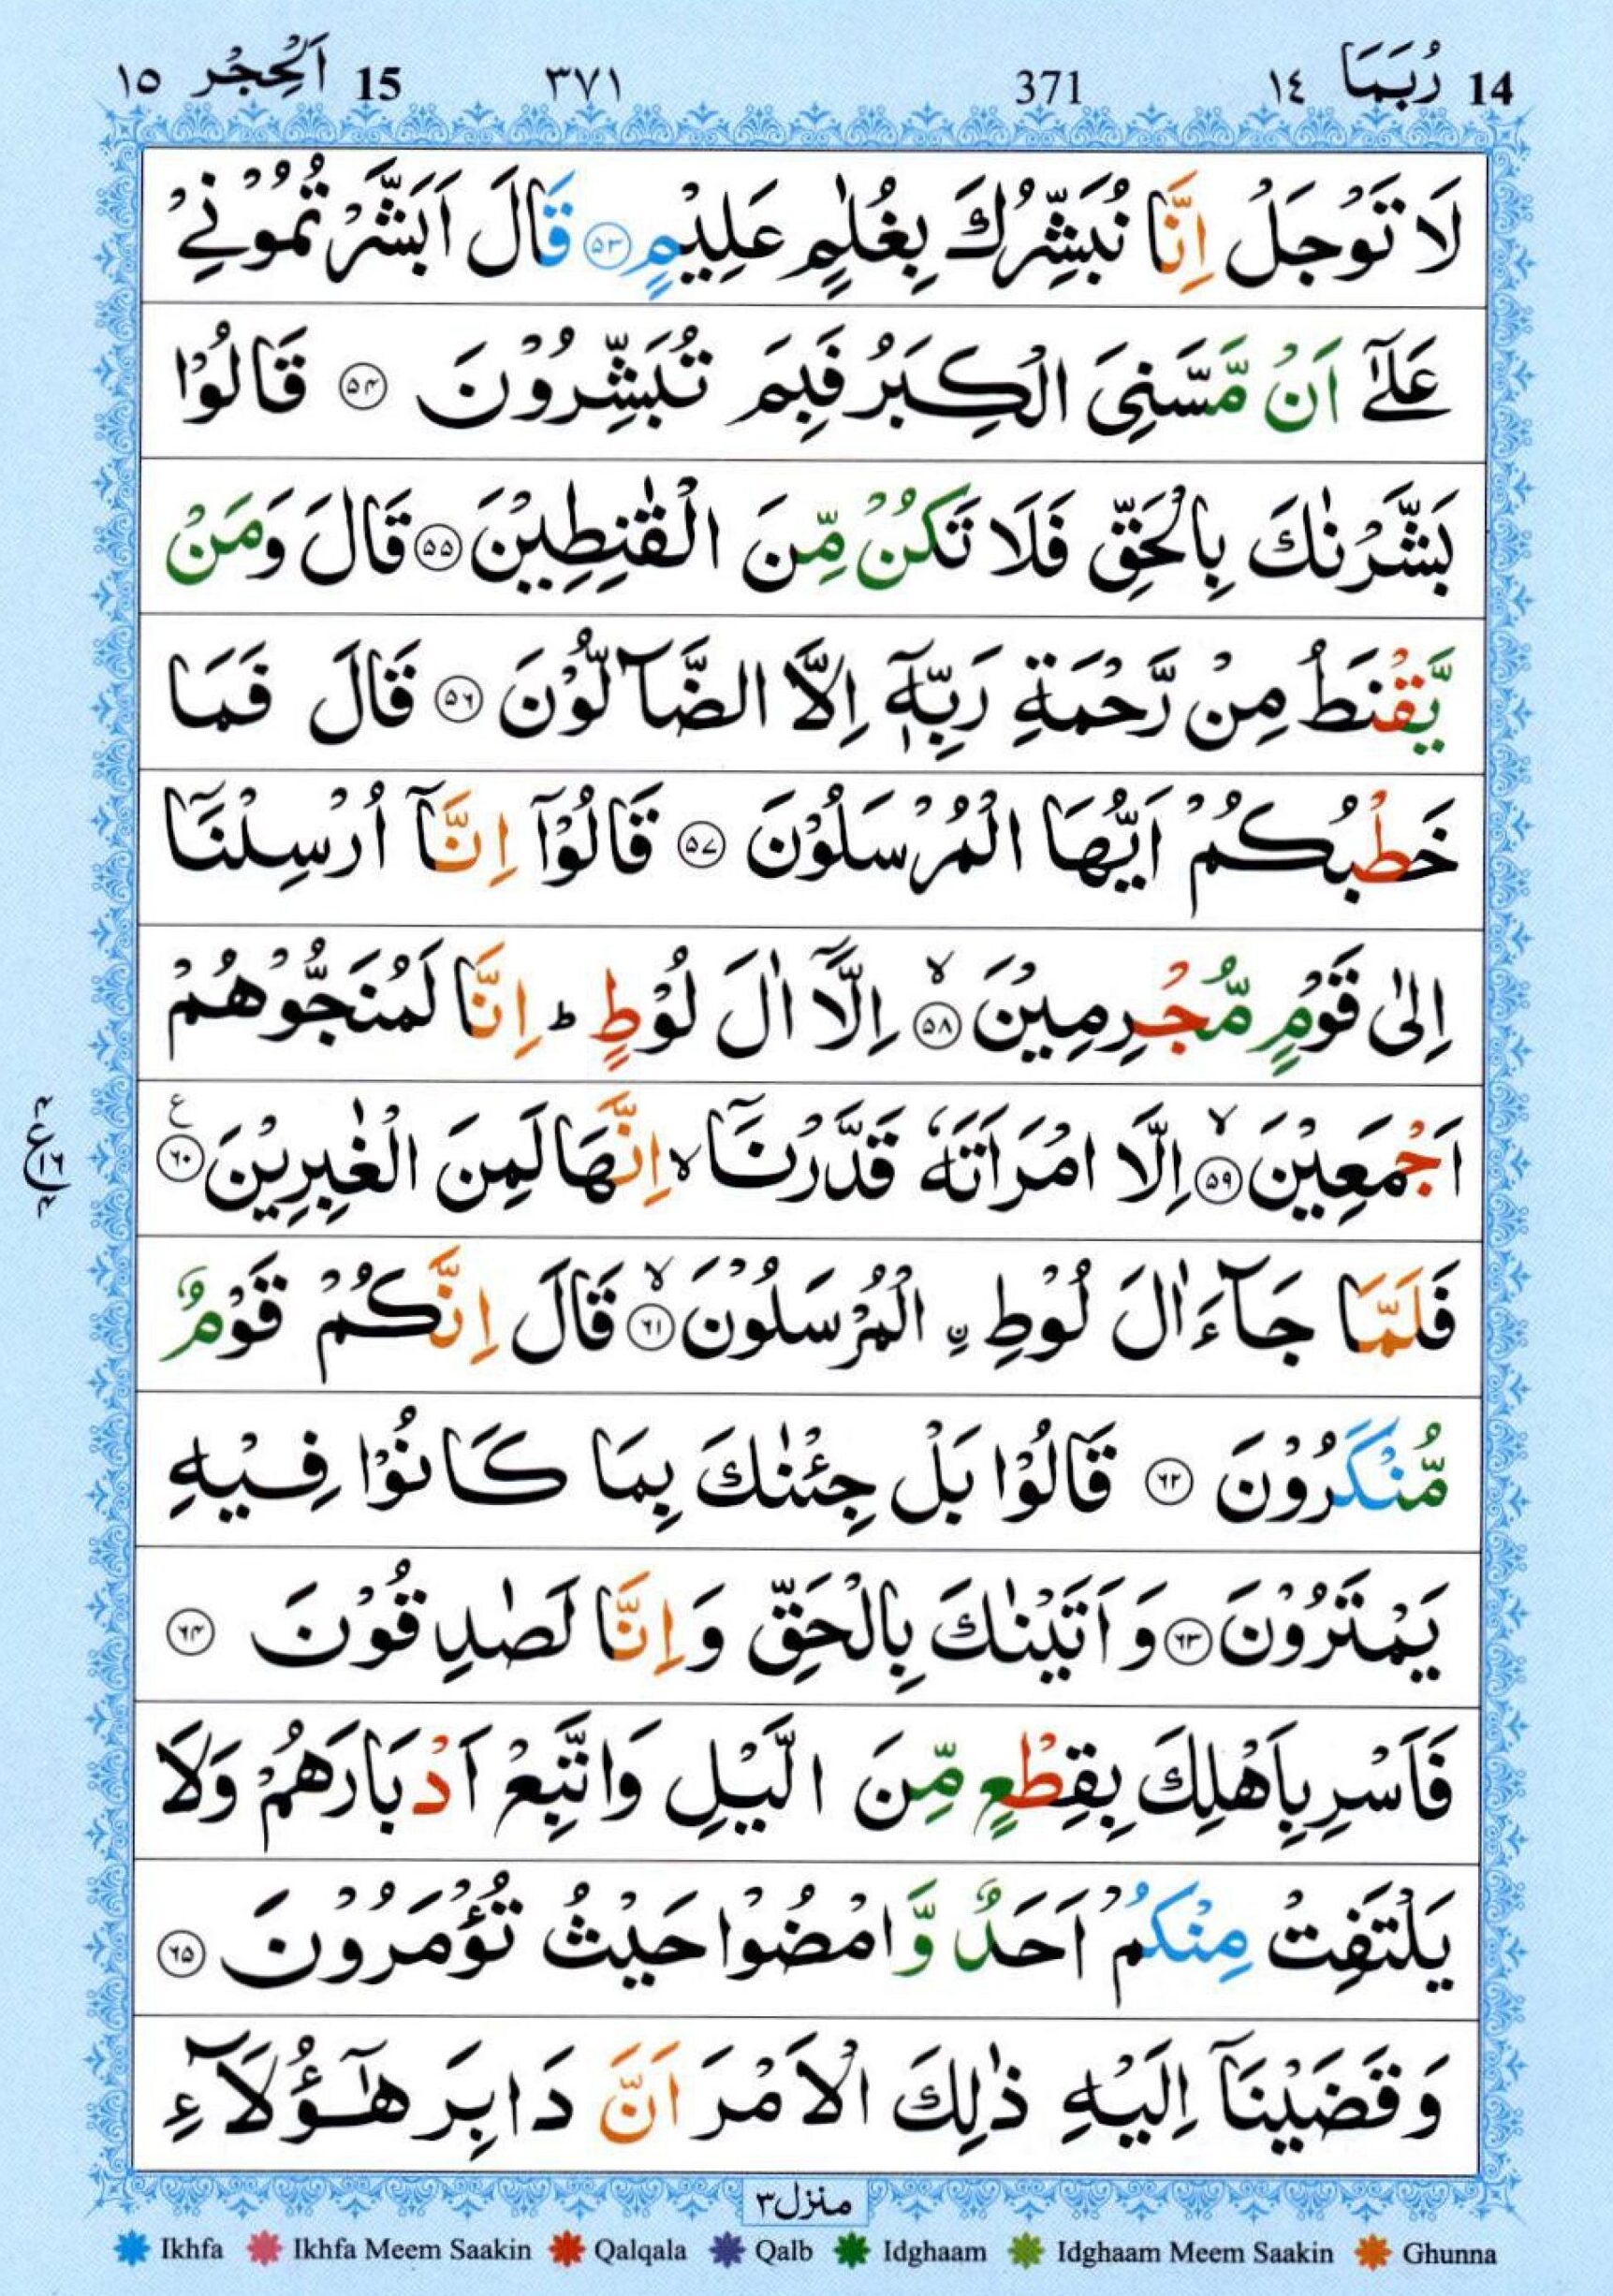 14 رُبَمَا ١٤ 371 ٣٧١ 15 اَلْحِجْر ١٥
لَا تَوْجَلْ اِنَّا نُبَشِّرُكَ بِغُلٰمٍ عَلِيْمٍ ﴿۵۳﴾ قَالَ اَبَشَّرْتُمُوْنِيْ
عَلٰٓى اَنْ مَّسَّنِيَ الْكِبَرُ فَبِمَ تُبَشِّرُوْنَ ﴿۵۴﴾ قَالُوْا
بَشَّرْنٰكَ بِالْحَقِّ فَلَا تَكُنْ مِّنَ الْقٰنِطِيْنَ ﴿۵۵﴾ قَالَ وَمَنْ
يَّقْنَطُ مِنْ رَّحْمَةِ رَبِّهٖٓ اِلَّا الضَّآلُّوْنَ ﴿۵۶﴾ قَالَ فَمَا
خَطْبُكُمْ اَيُّهَا الْمُرْسَلُوْنَ ﴿۵۷﴾ قَالُوْٓا اِنَّآ اُرْسِلْنَآ
اِلٰى قَوْمٍ مُّجْرِمِيْنَ ۙ﴿۵۸﴾ اِلَّآ اٰلَ لُوْطٍ ؕ اِنَّا لَمُنَجُّوْهُمْ
اَجْمَعِيْنَ ۙ﴿۵۹﴾ اِلَّا امْرَاَتَهٗ قَدَّرْنَآ ۙ اِنَّهَا لَمِنَ الْغٰبِرِيْنَ ﴿۶۰﴾ ع
ع ١٦ ٤
فَلَمَّا جَآءَ اٰلَ لُوْطِ ۨ الْمُرْسَلُوْنَ ۙ﴿۶۱﴾ قَالَ اِنَّكُمْ قَوْمٌ
مُّنْكَرُوْنَ ﴿۶۲﴾ قَالُوْا بَلْ جِئْنٰكَ بِمَا كَانُوْا فِيْهِ
يَمْتَرُوْنَ ﴿۶۳﴾ وَاَتَيْنٰكَ بِالْحَقِّ وَاِنَّا لَصٰدِقُوْنَ ﴿۶۴﴾
فَاَسْرِ بِاَهْلِكَ بِقِطْعٍ مِّنَ الَّيْلِ وَاتَّبِعْ اَدْبَارَهُمْ وَلَا
يَلْتَفِتْ مِنْكُمْ اَحَدٌ وَّامْضُوْا حَيْثُ تُؤْمَرُوْنَ ﴿۶۵﴾
وَقَضَيْنَآ اِلَيْهِ ذٰلِكَ الْاَمْرَ اَنَّ دَابِرَ هٰٓؤُلَآءِ
منزل ٣
Ikhfa Ikhfa Meem Saakin Qalqala Qalb Idghaam Idghaam Meem Saakin Ghunna